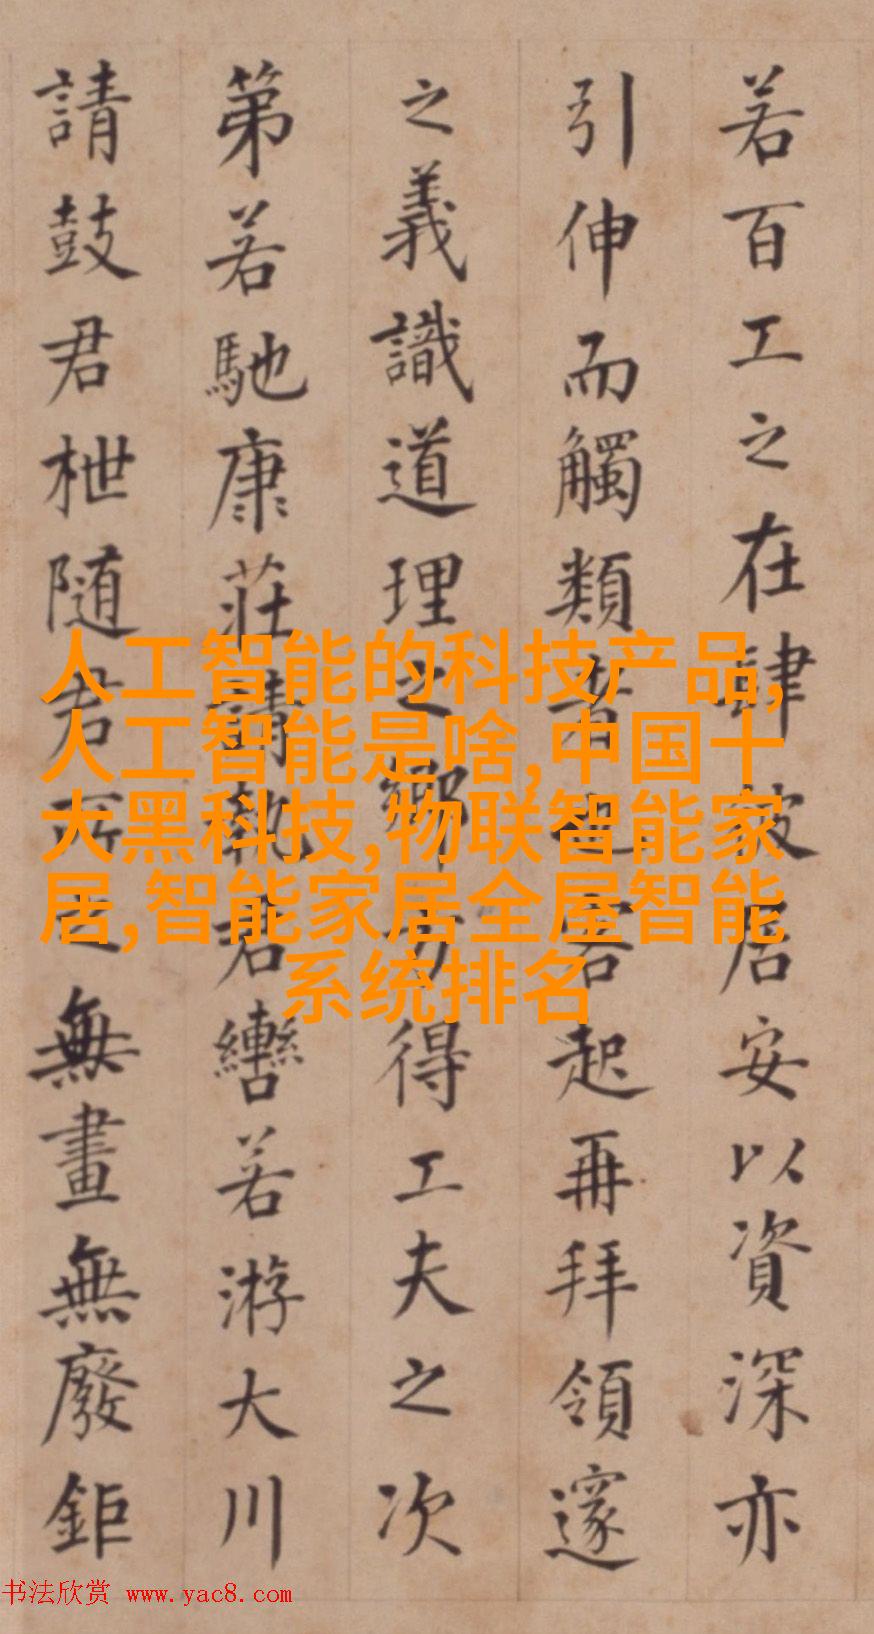 若百工之在肆居安以資深亦
引伸而觸類者也客起再拜領邃
之義識道理之鄉方得工夫之次
第若馳康莊請執君轡若游大川
請鼓君枻随君所之無畫無廢鉅
人工智能的科技产品,
人工智能是啥,中国十
大黑科技,物联智能家
居,智能家居全屋智能
系统排名
书法欣赏 www.yac8.com